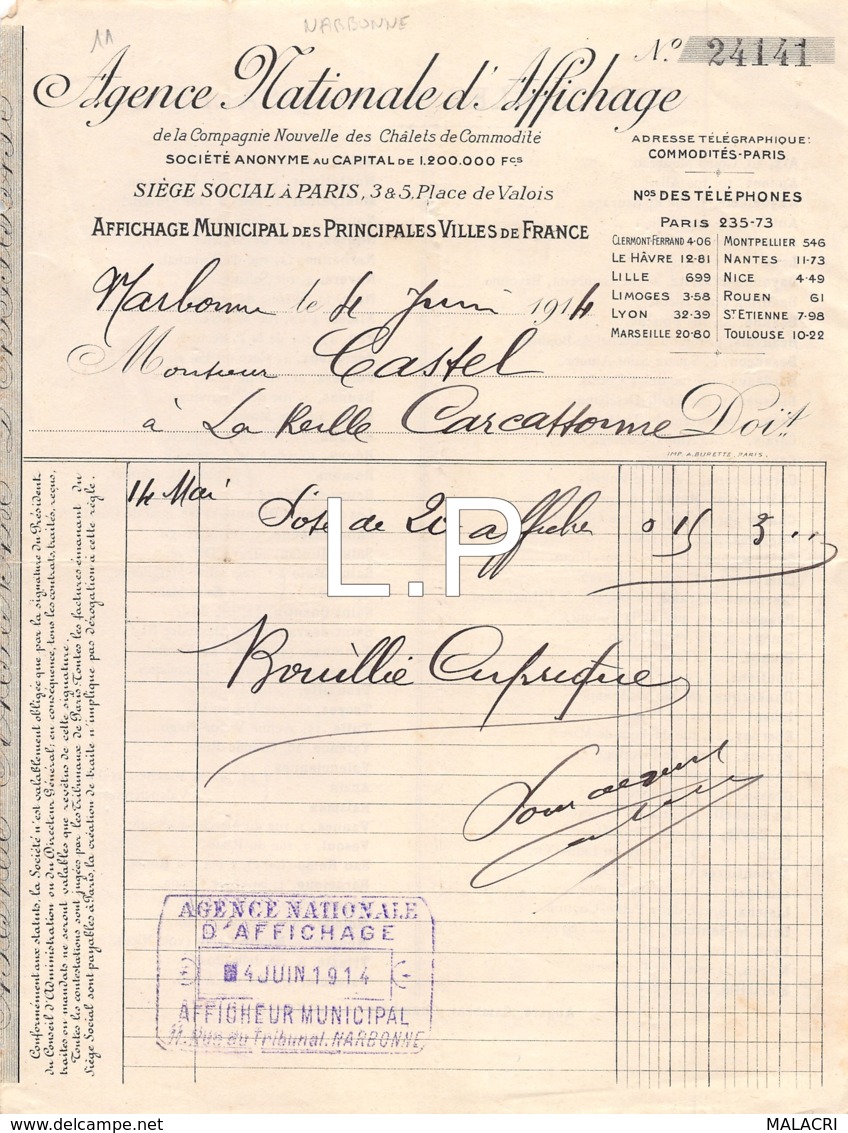 11
NARBONNE
Nº 24141
Agence Nationale d'Affichage
de la Compagnie Nouvelle des Châlets de Commodité
SOCIÉTÉ ANONYME AU CAPITAL DE 1.200.000 Fcs
SIÈGE SOCIAL À PARIS, 3 & 5, Place de Valois
AFFICHAGE MUNICIPAL DES PRINCIPALES VILLES DE FRANCE
ADRESSE TÉLÉGRAPHIQUE:
COMMODITÉS-PARIS
Nos DES TÉLÉPHONES
PARIS 235-73
CLERMONT-FERRAND 4-06
LE HÂVRE 12-81
LILLE 699
LIMOGES 3-58
LYON 32-39
MARSEILLE 20-80
MONTPELLIER 546
NANTES 11-73
NICE 4-49
ROUEN 61
ST ETIENNE 7-98
TOULOUSE 10-22
Narbonne le 4 Juin 1914
Monsieur Castel
à La Carcassonne Doit
IMP. A. BURETTE, PARIS.
14 Mai Pose de 20 affiches 0 15 3 "
L.P
Bouillie Cuprique
Pour acquit
AGENCE NATIONALE
D'AFFICHAGE
4 JUIN 1914
AFFICHEUR MUNICIPAL
11. Rue du Tribunal. NARBONNE
Conformément aux statuts, la Société n'est valablement obligée que par la signature du Président
du Conseil d'Administration ou du Directeur Général; en conséquence, tous les contrats, traités, reçus,
traites ou mandats ne seront valables que revêtus de cette signature.
Toutes les contestations sont jugées par les Tribunaux de Paris. Toutes les factures émanant du
Siège Social sont payables à Paris, la création de traite n'implique pas dérogation à cette règle.
www.delcampe.net
MALACRI